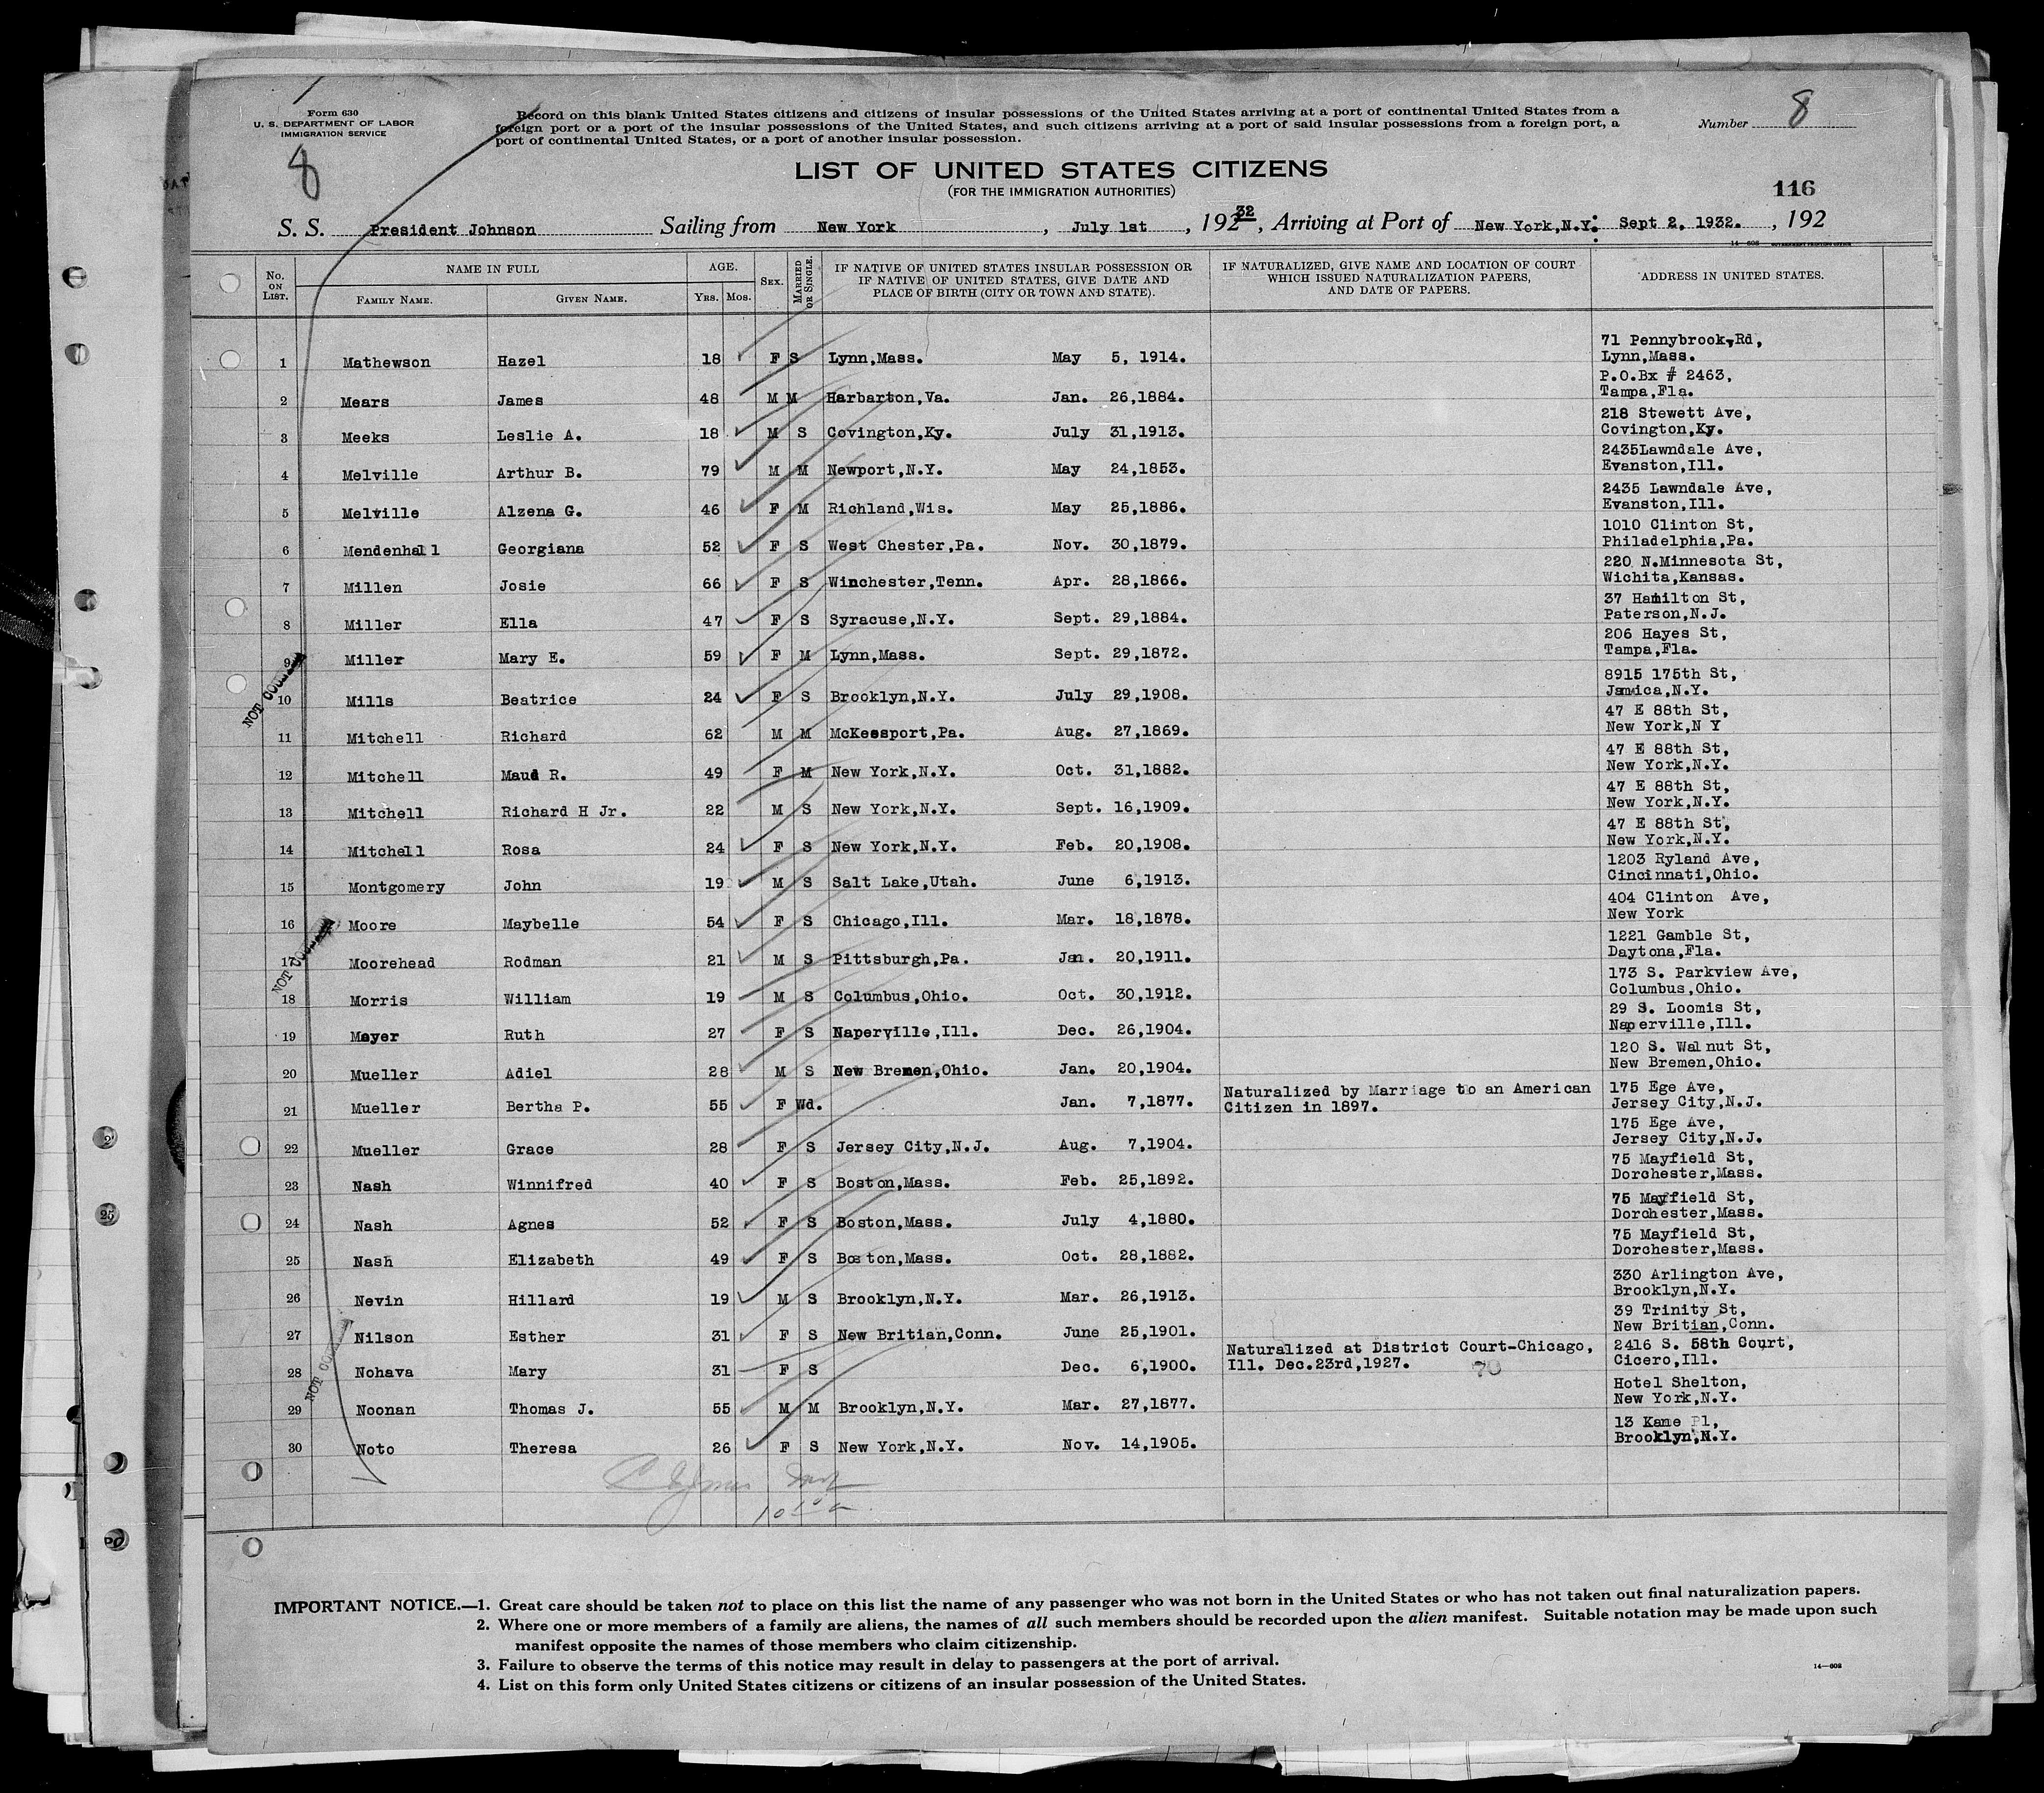 Form 630
U. S. DEPARTMENT OF LABOR
IMMIGRATION SERVICE
8
Record on this blank United States citizens and citizens of insular possessions of the United States arriving at a port of continental United States from a
foreign port or a port of the insular possessions of the United States, and such citizens arriving at a port of said insular possessions from a foreign port, a
port of continental United States, or a port of another insular possession.
Number 8
LIST OF UNITED STATES CITIZENS
(FOR THE IMMIGRATION AUTHORITIES)
116
S. S. President Johnson Sailing from New York, July 1st, 192 32, Arriving at Port of New York,N.Y: Sept 2, 1932., 192
14—608
No. ON LIST. NAME IN FULL AGE. SEX. MARRIED OR SINGLE. IF NATIVE OF UNITED STATES INSULAR POSSESSION OR IF NATIVE OF UNITED STATES, GIVE DATE AND PLACE OF BIRTH (CITY OR TOWN AND STATE). IF NATURALIZED, GIVE NAME AND LOCATION OF COURT WHICH ISSUED NATURALIZATION PAPERS, AND DATE OF PAPERS. ADDRESS IN UNITED STATES.
FAMILY NAME. GIVEN NAME. YRS. MOS.
71 Pennybrook,Rd,
1 Mathewson Hazel 18 F S Lynn,Mass. May 5, 1914. Lynn,Mass.
P.O.Bx # 2463,
2 Mears James 48 M M Harbarton,Va. Jan. 26,1884. Tampa,Fla.
218 Stewett Ave,
3 Meeks Leslie A. 18 M S Covington,Ky. July 31,1913. Covington,Ky.
2435Lawndale Ave,
4 Melville Arthur B. 79 M M Newport,N.Y. May 24,1853. Evanston,Ill.
2435 Lawndale Ave,
5 Melville Alzena G. 46 F M Richland,Wis. May 25,1886. Evanston,Ill.
1010 Clinton St,
6 Mendenhall Georgiana 52 F S West Chester,Pa. Nov. 30,1879. Philadelphia,Pa.
220 N.Minnesota St,
7 Millen Josie 66 F S Winchester,Tenn. Apr. 28,1866. Wichita,Kansas.
37 Hamilton St,
8 Miller Ella 47 F S Syracuse,N.Y. Sept. 29,1884. Paterson,N.J.
206 Hayes St,
9 Miller Mary E. 59 F M Lynn,Mass. Sept. 29,1872. Tampa,Fla.
8915 175th St,
10 Mills Beatrice 24 F S Brooklyn,N.Y. July 29,1908. Jamaica,N.Y.
47 E 88th St,
11 Mitchell Richard 62 M M McKeesport,Pa. Aug. 27,1869. New York,N Y
47 E 88th St,
12 Mitchell Maud R. 49 F M New York,N.Y. Oct. 31,1882. New York,N.Y.
47 E 88th St,
13 Mitchell Richard H Jr. 22 M S New York,N.Y. Sept. 16,1909. New York,N.Y.
47 E 88th St,
14 Mitchell Rosa 24 F S New York,N.Y. Feb. 20,1908. New York,N.Y.
1203 Ryland Ave,
15 Montgomery John 19 M S Salt Lake,Utah. June 6,1913. Cincinnati,Ohio.
404 Clinton Ave,
16 Moore Maybelle 54 F S Chicago,Ill. Mar. 18,1878. New York
1221 Gamble St,
17 Moorehead Rodman 21 M S Pittsburgh,Pa. Jan. 20,1911. Daytona,Fla.
173 S. Parkview Ave,
18 Morris William 19 M S Columbus,Ohio. Oct. 30,1912. Columbus,Ohio.
29 S. Loomis St,
19 Meyer Ruth 27 F S Naperville,Ill. Dec. 26,1904. Naperville,Ill.
120 S. Walnut St,
20 Mueller Adiel 28 M S New Bremen,Ohio. Jan. 20,1904. New Bremen,Ohio.
Naturalized by Marriage to an American 175 Ege Ave,
21 Mueller Bertha P. 55 F Wd. Jan. 7,1877. Citizen in 1897. Jersey City,N.J.
175 Ege Ave,
22 Mueller Grace 28 F S Jersey City,N.J. Aug. 7,1904. Jersey City,N.J.
75 Mayfield St,
23 Nash Winnifred 40 F S Boston,Mass. Feb. 25,1892. Dorchester,Mass.
75 Mayfield St,
24 Nash Agnes 52 F S Boston,Mass. July 4,1880. Dorchester,Mass.
75 Mayfield St,
25 Nash Elizabeth 49 F S Boston,Mass. Oct. 28,1882. Dorchester,Mass.
330 Arlington Ave,
26 Nevin Hillard 19 M S Brooklyn,N.Y. Mar. 26,1913. Brooklyn,N.Y.
39 Trinity St,
27 Nilson Esther 31 F S New Britian,Conn. June 25,1901. New Britian,Conn.
Naturalized at District Court-Chicago, 2416 S. 58th Court,
28 Nohava Mary 31 F S Dec. 6,1900. Ill. Dec.23rd,1927. 70 Cicero,Ill.
Hotel Shelton,
29 Noonan Thomas J. 55 M M Brooklyn,N.Y. Mar. 27,1877. New York,N.Y.
13 Kane Pl,
30 Noto Theresa 26 F S New York,N.Y. Nov. 14,1905. Brooklyn,N.Y.
IMPORTANT NOTICE.—1. Great care should be taken not to place on this list the name of any passenger who was not born in the United States or who has not taken out final naturalization papers.
2. Where one or more members of a family are aliens, the names of all such members should be recorded upon the alien manifest. Suitable notation may be made upon such
manifest opposite the names of those members who claim citizenship.
3. Failure to observe the terms of this notice may result in delay to passengers at the port of arrival.
4. List on this form only United States citizens or citizens of an insular possession of the United States.
14—608